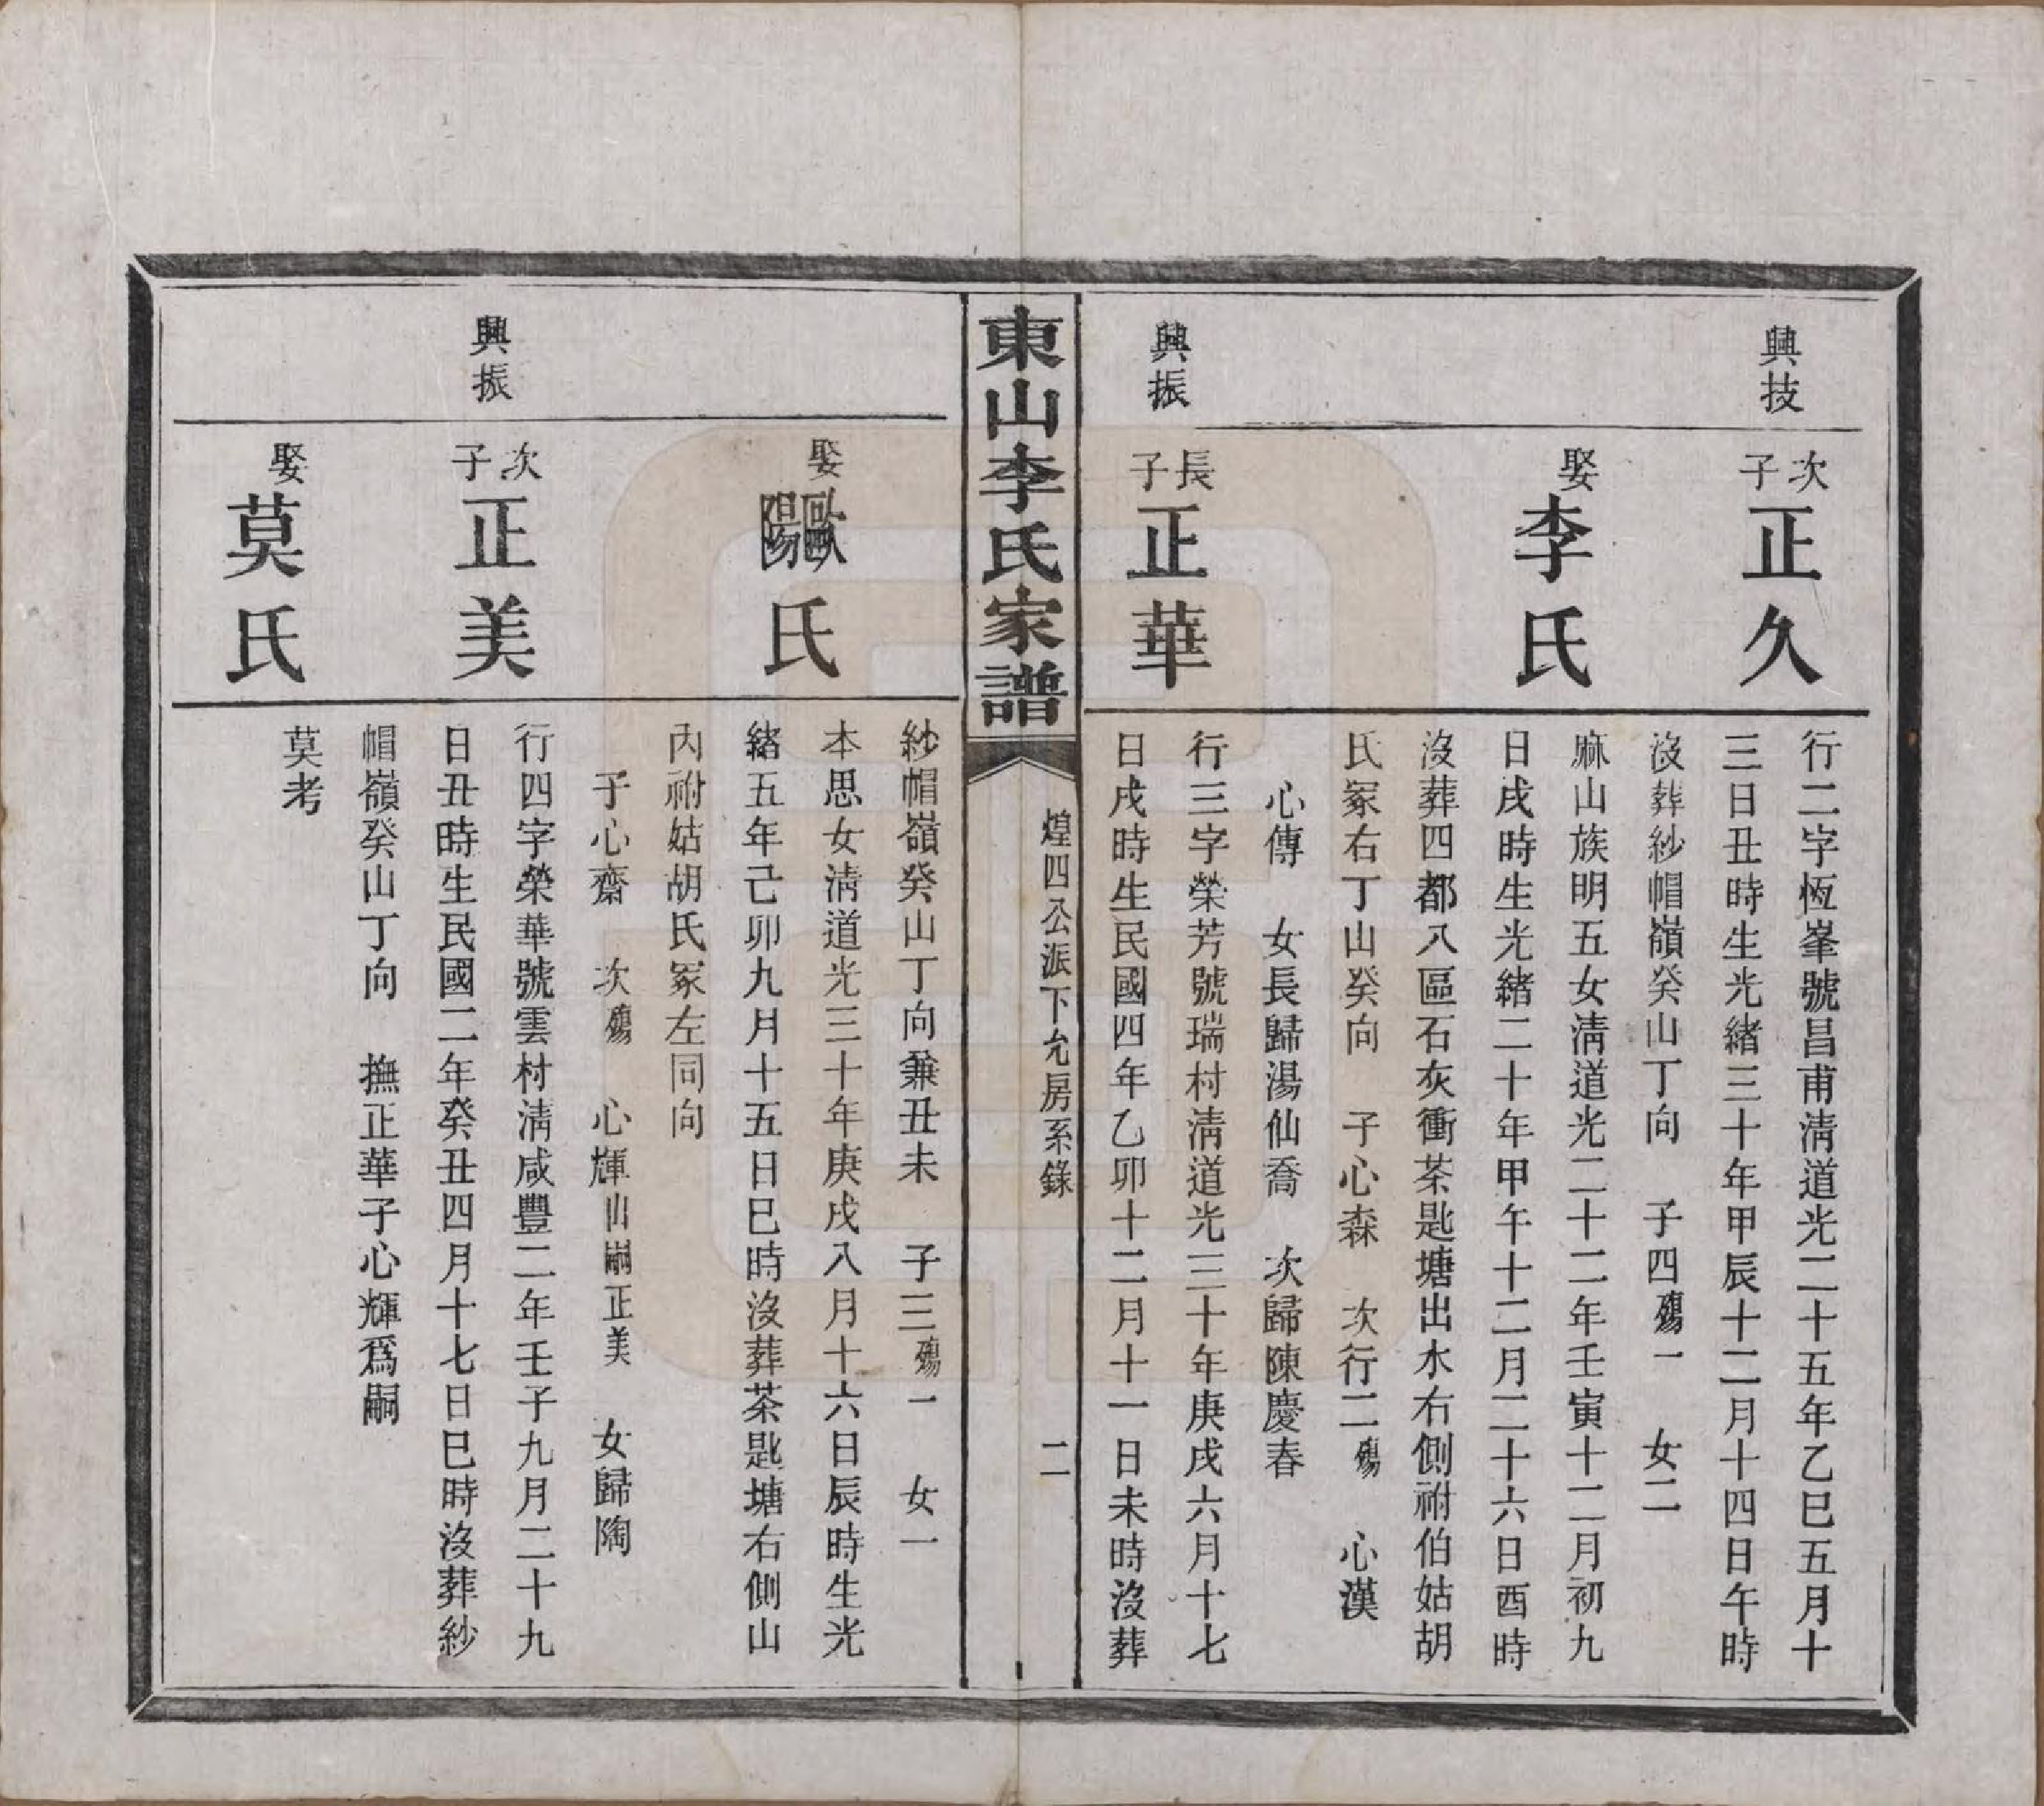 興技
次子正久
行二字恆峯號昌甫淸道光二十五年乙巳五月十
三日丑時生光緒三十年甲辰十二月十四日午時
沒葬紗帽嶺癸山丁向　子四殤一　女二
娶李氏
麻山族明五女淸道光二十二年壬寅十二月初九
日戌時生光緒二十年甲午十二月二十六日酉時
沒葬四都八區石灰衝茶匙塘出水右側祔伯姑胡
氏冢右丁山癸向　子心森　次行二殤　心漢
心傳　女長歸湯仙喬　次歸陳慶春
興振
長子正華
行三字榮芳號瑞村淸道光三十年庚戌六月十七
日戌時生民國四年乙卯十二月十一日未時沒葬
東山李氏家譜
煌四公派下允房系錄
二
紗帽嶺癸山丁向兼丑未　子三殤一　女一
娶歐陽氏
本思女淸道光三十年庚戌八月十六日辰時生光
緒五年己卯九月十五日巳時沒葬茶匙塘右側山
內祔姑胡氏冢左同向
子心齋　次殤　心輝出嗣正美　女歸陶
興振
次子正美
行四字榮華號雲村淸咸豐二年壬子九月二十九
日丑時生民國二年癸丑四月十七日巳時沒葬紗
帽嶺癸山丁向　撫正華子心輝爲嗣
娶莫氏
莫考